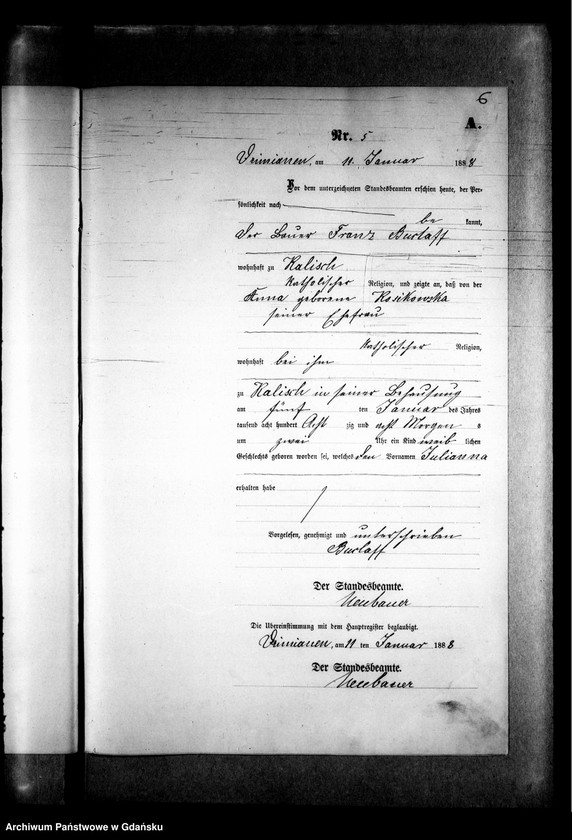 6
A.
Nr. 5
am 11. Januar 1888
Vor dem unterzeichneten Standesbeamten erschien heute, der Per-
sönlichkeit nach
be kannt,
der Bauer Franz Burlaff
wohnhaft zu Kalisch
katholischer Religion, und zeigte an, daß von der
Anna geborene Kosikowska
seiner Ehefrau
katholischer Religion,
wohnhaft bei ihm
zu Kalisch in seiner Behausung
am fünf ten Januar des Jahres
tausend acht hundert Acht zig und acht Morgen s
um zwei Uhr ein Kind weib lichen
Geschlechts geboren worden sei, welches den Vornamen Julianna
erhalten habe
Vorgelesen, genehmigt und unterschrieben
Burlaff
Der Standesbeamte.
Neubauer
Die Übereinstimmung mit dem Hauptregister beglaubigt.
am 11 ten Januar 1888
Der Standesbeamte.
Neubauer
Archiwum Państwowe w Gdańsku